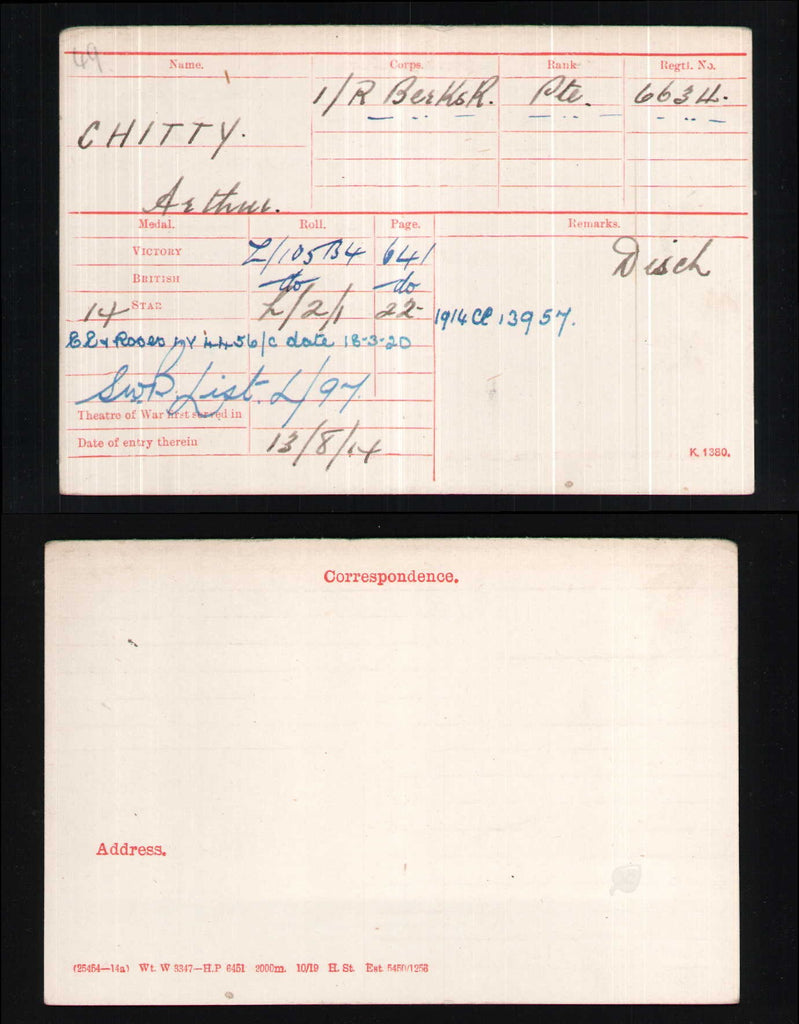 49
Name. Corps. Rank. Regtl. No.
1/R Berks R. Pte. 6634.
CHITTY.
Arthur.
Medal. Roll. Page. Remarks.
VICTORY L/105B4 641 Disch
BRITISH do do
14 STAR L/2/1 22 1914 Cl 13957.
EL & Roses NY 4456/c date 18-3-20
List. L/97
Theatre of War first served in
Date of entry therein 13/8/14
K. 1380.
Correspondence.
Address.
(25454—14a) Wt. W 3347—H.P 6451 2000m. 10/19 H. St. Est. 5450/1258